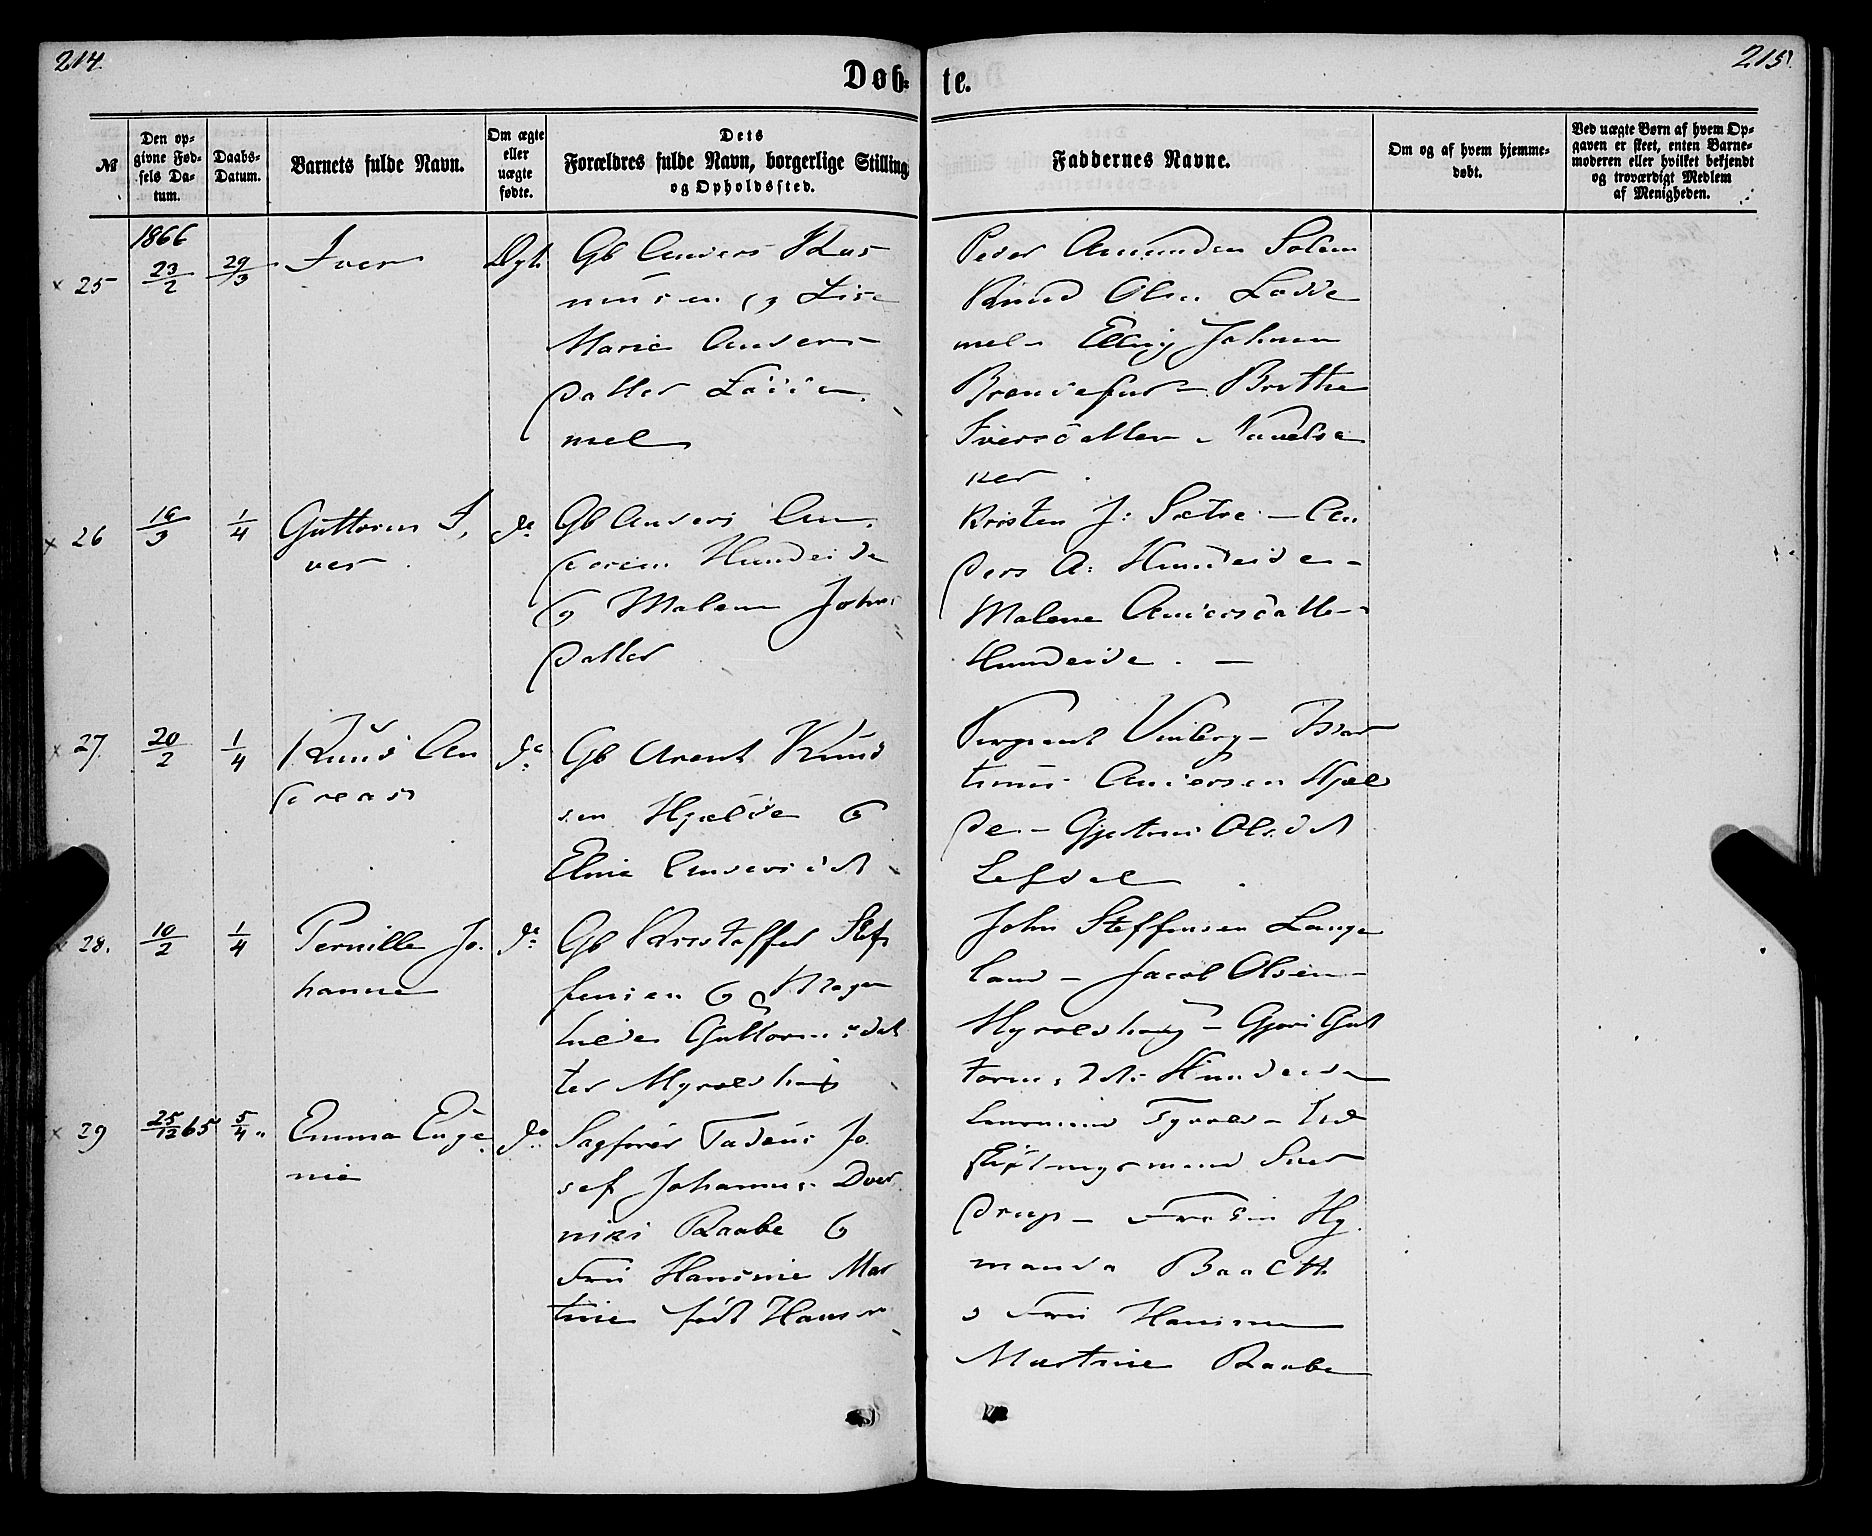 214.
215.
Døb-
te.
№
Den op-
givne Fød-
sels Da-
tum.
Daabs-
Datum.
Barnets fulde Navn.
Om ægte
eller
uægte
fødte.
Dets
Forældres fulde Navn, borgerlige Stilling
og Opholdssted.
Faddernes Navne.
Om og af hvem hjemme-
døbt.
Ved uægte Børn af hvem Op-
gaven er skeet, enten Barne-
moderen eller hvilket bekjendt
og troværdigt Medlem
af Menigheden.
1866
x 25
23/2
29/3
Iver
Ægt.
Gb Anders Ras
mussen og Lise
Marie Anders
datter Lødde
mel
Peder Amundsen Solem
Knud Olsen Lødde
mel - Elling Johnsen
Brendefur - Brithe
Iversdatter -
ker
x 26
1/4
Guttorm I,
ver
do
Gb Anders An
dersen Hundeide
og Malene Johns
datter
Kristen J: Sætre - An
ders A: Hundeide -
Malene Andersdatter
Hundeide. -
x 27.
20/2
1/4
Knud An
dreas
do
Gb Arent Knud
sen Hjelde og
Eline Andersdt
Sergeant Vinberg -
timus Andersen Hjel
de - Gjertrui Olsdt
Lefdal
x 28.
10/2
1/4
Pernille Jo.
hanne
do
Gb Kristoffer Stef
fensen og Mag
hilde Guttormsdat
ter Myroldhaug
John Steffensen Lange
land - Jacob Olsen -
Myroldhaug - Gjøri Gut
torms dtr Hundeide
x 29
25/12 65
5/4
Emma Euge
nie
do
Sagfører Tadeus Jo
sef Johannes Dver
niki Raabe og
Fru Hansine Mar
tine født Hansen
Lensmand Tyvold - Ud
skiftningsmand Sver
drup - Frøkin Hy
manda Baacth
- Fru Hansine
Martine Raabe